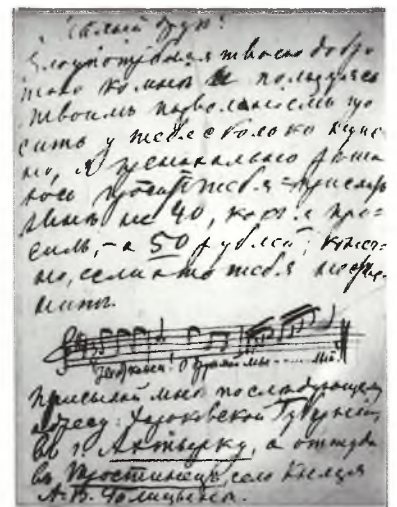 Милый друг!
Злоупотребляя твоею добро-
тою ко мнѣ и пользуясь
твоимъ позволеніемъ про-
сить у тебя сколько нуж-
но, я пренахально рѣша-
юсь просить тебя прислать
мнѣ не 40, какъ я про-
силъ, – а 50 рублей; конеч-
но, если это тебя не
О мы ...... мой!
Присылай мнѣ по слѣдующему
адресу: Харьковской Губерніи,
въ г. Ахтырку, а оттуда
въ Тростинецъ, село Князя
А. В. Голицына.